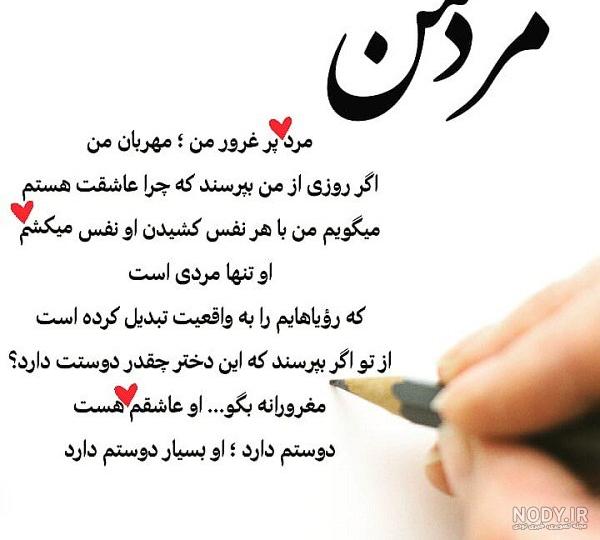 مرد من
مرد پر غرور من ؛ مهربان من
اگر روزی از من بپرسند که چرا عاشقت هستم
میگویم من با هر نفس کشیدن او نفس میکشم
او تنها مردی است
که رؤیاهایم را به واقعیت تبدیل کرده است
از تو اگر بپرسند که این دختر چقدر دوستت دارد؟
مغرورانه بگو... او عاشقم هست
دوستم دارد ؛ او بسیار دوستم دارد
NODY.IR